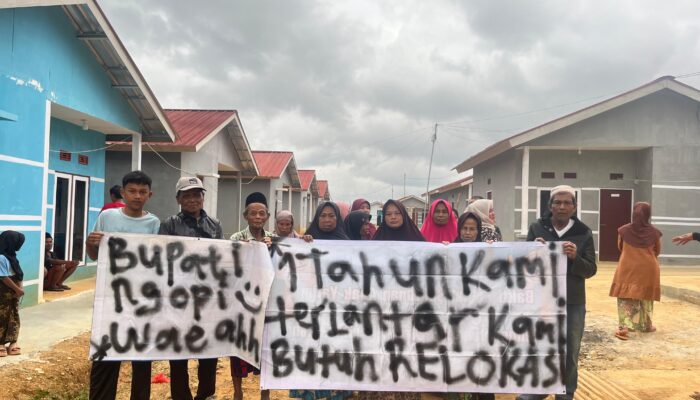 Bupati
ngopi
*wae ahh
Tahun Kami
terlantar Kami
Butuh RELOKASI